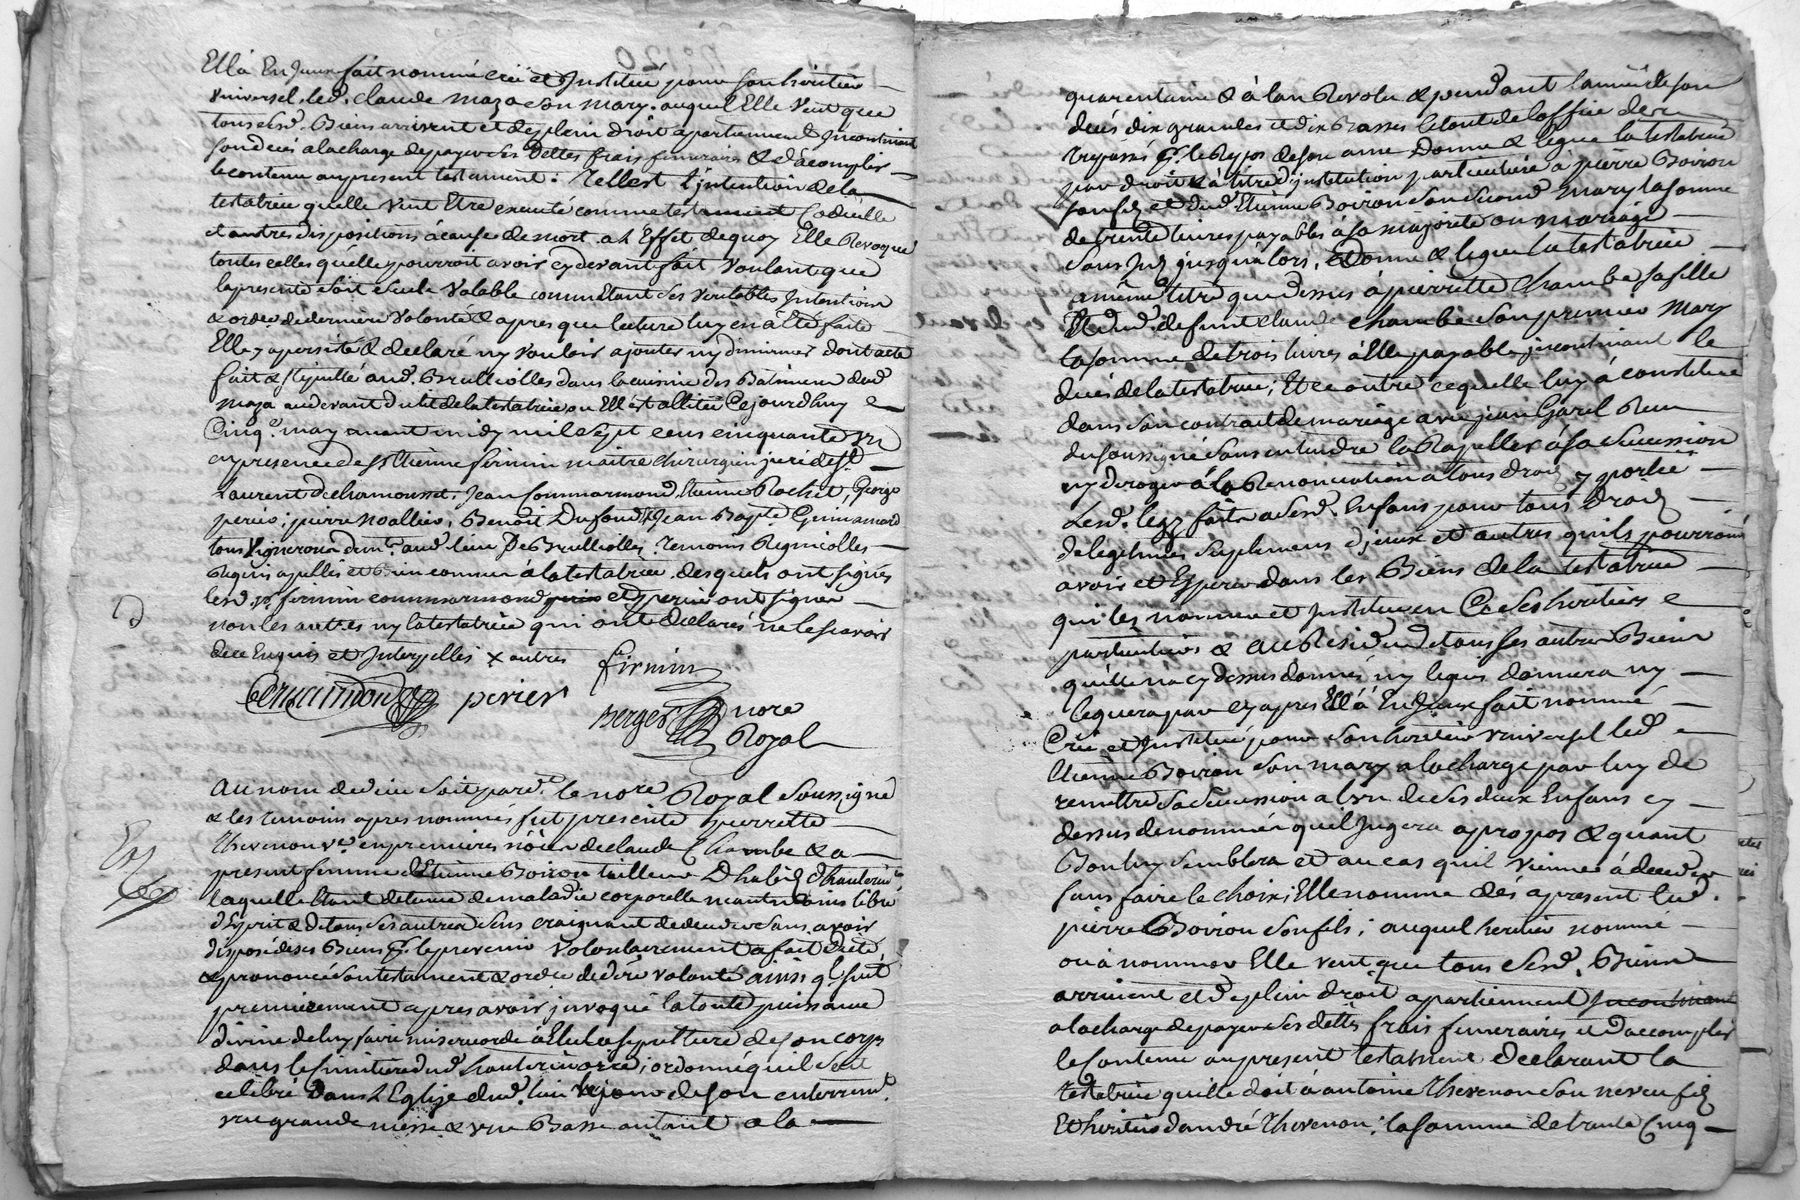 Ella En Jceux fait nommé créé et Jnstitué pour son heritier
vniversel led. claude maza son mary. auquel Elle veut que
tous sesd. Biens arrivent et de plein droit apartiennent Jncontinant
son decés a la charge de payer ses dettes frais funeraires & d'acomplir
le contenu au present testament : Tellest l'jntention de la
testatrice quelle veut Etre executé comme testament Codicille
et autres dispositions à cause de mort. a L'Effet de quoy Elle Revoque
toutes celles quelle pourroit avoir cy devant fait voulant que
la presente soit seule valable comme Etant ses veritables Jntentions
& ordce de derniere volonté & apres que lecture luy en à été faite
Elle y a persisté & declaré ny vouloir ajouter ny diminuer dont acte
fait & stipullé aud. Brulliolles dans la cuisine des Batimens dud
maza au devant du lit de la testatrice ou Ell'est allitée Cejourdhuy
Cinq.e may avant midy mil sept cens cinquante vn
en presence de sr Etienne firmin maitre chirurgien juré de st
Laurent de chamousset, Jean Commarmond, Etienne Rochet, George
perier, pierre noallier, Benoit Dufour & Jean Bapte Guinamard
tous vignerons demt. aud. lieu De Brulliolles Temoins Regnicolles
Requis apellés et Bien connus à la testatrice. desquels ont signés
lesd. sr firmin commarmond et perier ont signé
non les autres ny la testatrice qui ont declarés ne le scavoir
de ce Enquis et Jnterpellés x autres
firmin
Commarmond perier
Berger nore
Royal
Au nom de dieu soit par d. le nore Royal soussigné
& les temoins apres nommés fut presente pierrette
Thevenon ve. en premieres nôces de claude Chambe & a
present femme d'Etienne Boiron tailleur D'habits d'hauterivoire
laquelle Etant detenue de maladie corporelle neantmoins libre
d'Esprit & de tous ses autres sens craignant de deceder sans avoir
disposé de ses Biens pr. le prevenir volontairement a fait dicté
& prononcé son testament & ordce de dre volonté ainsi q. suit
premierement apres avoir jnvoqué la toute puissance
divine de luy faire misericorde à Elu la sepulture de son corps
dans le simitiere dud. hauterivoire; ordonné qu'il soit
celebré dans L'Eglise dud. lieu le jour de son enterremt.
vne grande messe & vne Basse autant a la
quarentaine & à l'an Revolu & pendant l'année de son
decés dix grandes et dix Basses le tout de l'office des
trepassés pr. le Repos de son ame Donne & legue la testatrice
par droit & à titre d'jnstitution particuliere à pierre Boiron
son fils et dud. Etienne Boiron son second mary la somme
de trente livres payables à sa majorité ou mariage
sans Jnt. jusqu'alors, & Donne & legue la testatrice
a même titre que dessus à pierrette Chambe sa fille
Et dud. defunt claude Chambe son premier mary
la somme de trois livres à Elle payable jncontinant le
decés de la testatrice, Et ce outre ce quelle luy à constitué
dans son contract de mariage avec jean Garel Reçu
du soussigné sans entendre la Rapeller à sa succession
ny deroger à la Renonciation a tous droits y portée
Lesd. legs faits a sesd. Enfans pour tous Droits
de legitimes suplemens d'jceux et autres qu'ils pourroient
avoir et Esperer dans les Biens de la testatrice
qui les nomme et Jnstitue en Ce ses heritiers
particuliers & au Residu de tous ses autres Biens
quelle n'a cy dessus donnés ny legués donnera ny
leguera par cy apres Ell'à En Jceux fait nommé
Créé et Jnstitué pour son heritier vniversel led
Etienne Boiron son mary a la charge par luy de
remettre sa succession a l'vn de ses deux Enfans cy
dessus denommés quel Jugera apropos & quant
Bon luy semblera et au cas qu'il vienne à deceder
sans faire le choix; Elle nomme dès apresent led.
pierre Boiron son fils; auquel heritier nommé
ou à nommer Elle veut que tous sesd. Biens
arrivent et de plein droit apartiennent Jncontinant
a la charge de payer ses dettes frais funeraires et d'accomplir
le Contenu au present testament declarant la
testatrice quelle doit à antoine Thevenon son neveu fils
Et heritier d'andré Thevenon, la somme de trente Cinq